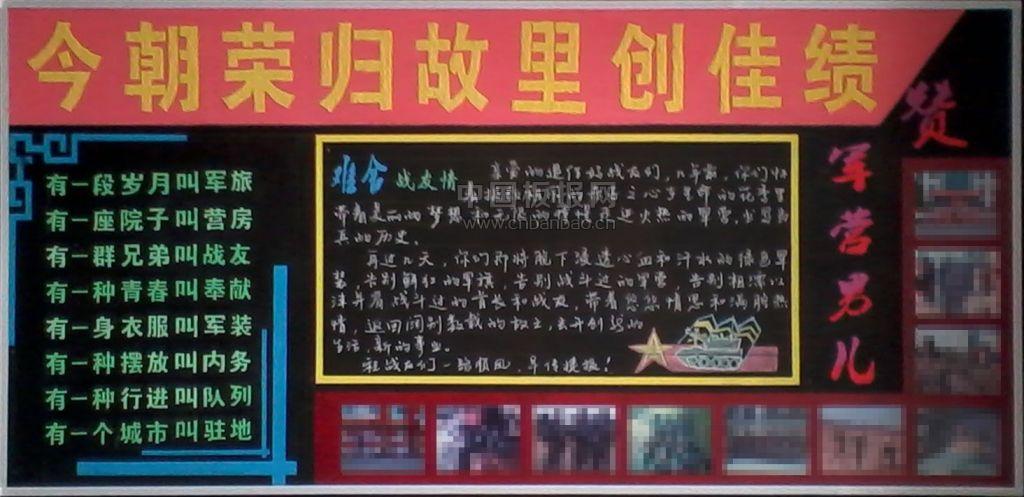 今朝荣归故里创佳绩
赞
军营男儿
有一段岁月叫军旅
有一座院子叫营房
有一群兄弟叫战友
有一种青春叫奉献
有一身衣服叫军装
有一种摆放叫内务
有一种行进叫队列
有一个城市叫驻地
难舍 战友情
亲爱的退伍好战友们，几年前，你们怀
带着美丽的梦想
真的历史。
再过几天，你们即将脱下浸透心血和汗水的绿色军
装，告别鲜红的军旗，告别战斗过的军营，告别相濡以
沫并肩战斗过的首长和战友，带着悠悠情思和满腔热
情，返回阔别数载的故土，去开创新的
生活、新的事业。
祝战友们一路顺风，早传捷报！
中国板报网
www.cnbanbao.cn